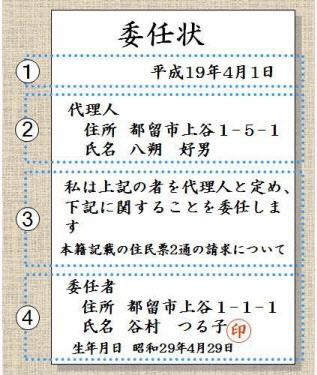 委任状
① 平成19年4月1日
② 代理人
住所 都留市上谷1-5-1
氏名 八朔 好男
③ 私は上記の者を代理人と定め、
下記に関することを委任しま
す
本籍記載の住民票2通の請求について
④ 委任者
住所 都留市上谷1-1-1
氏名 谷村 つる子 印
生年月日 昭和29年4月29日